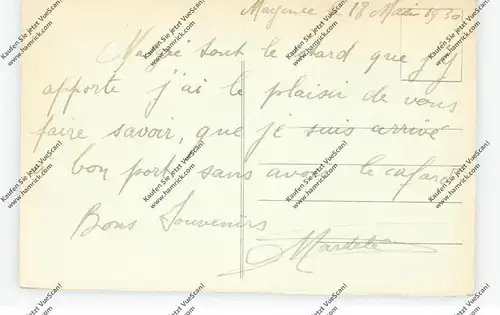 Mayence le 18 Mai 1930
Malgré tout le retard que j'y
apporte j'ai le plaisir de vous
faire savoir, que je suis arrivé
bon port, sans avoir le cafard
Bons Souvenirs
Kaufen Sie jetzt VueScan!
www.hamrick.com